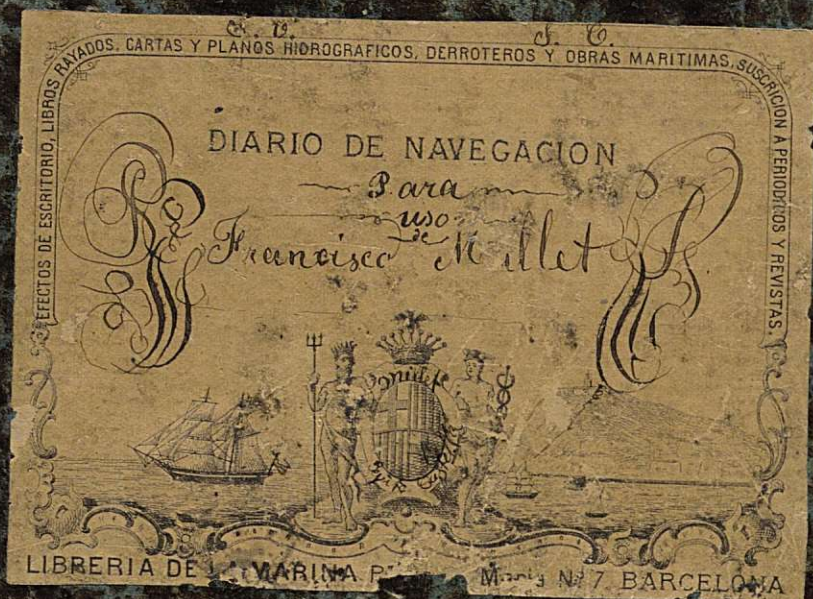 EFECTOS DE ESCRITORIO, LIBROS RAYADOS, CARTAS Y PLANOS HIDROGRAFICOS, DERROTEROS Y OBRAS MARITIMAS, SUSCRICION A PERIODICOS Y REVISTAS.
DIARIO DE NAVEGACION
Para
uso
de
Francisco
LIBRERIA DE MARINA Nº 7 BARCELONA